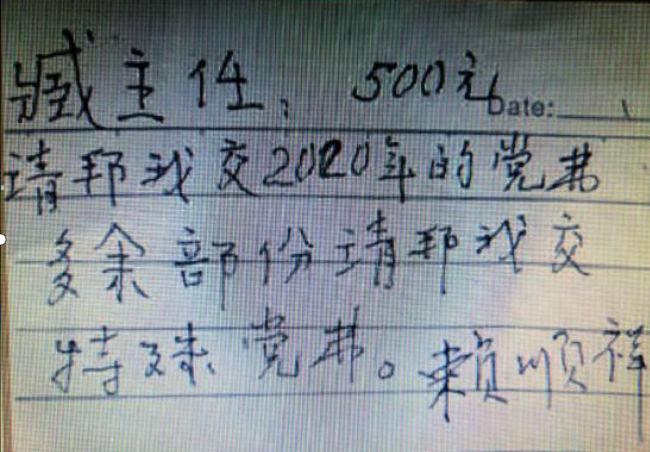 臧主任: 500元
Date:
请邦我交2020年的党费
多余部份请邦我交
特殊党费。赖顺祥